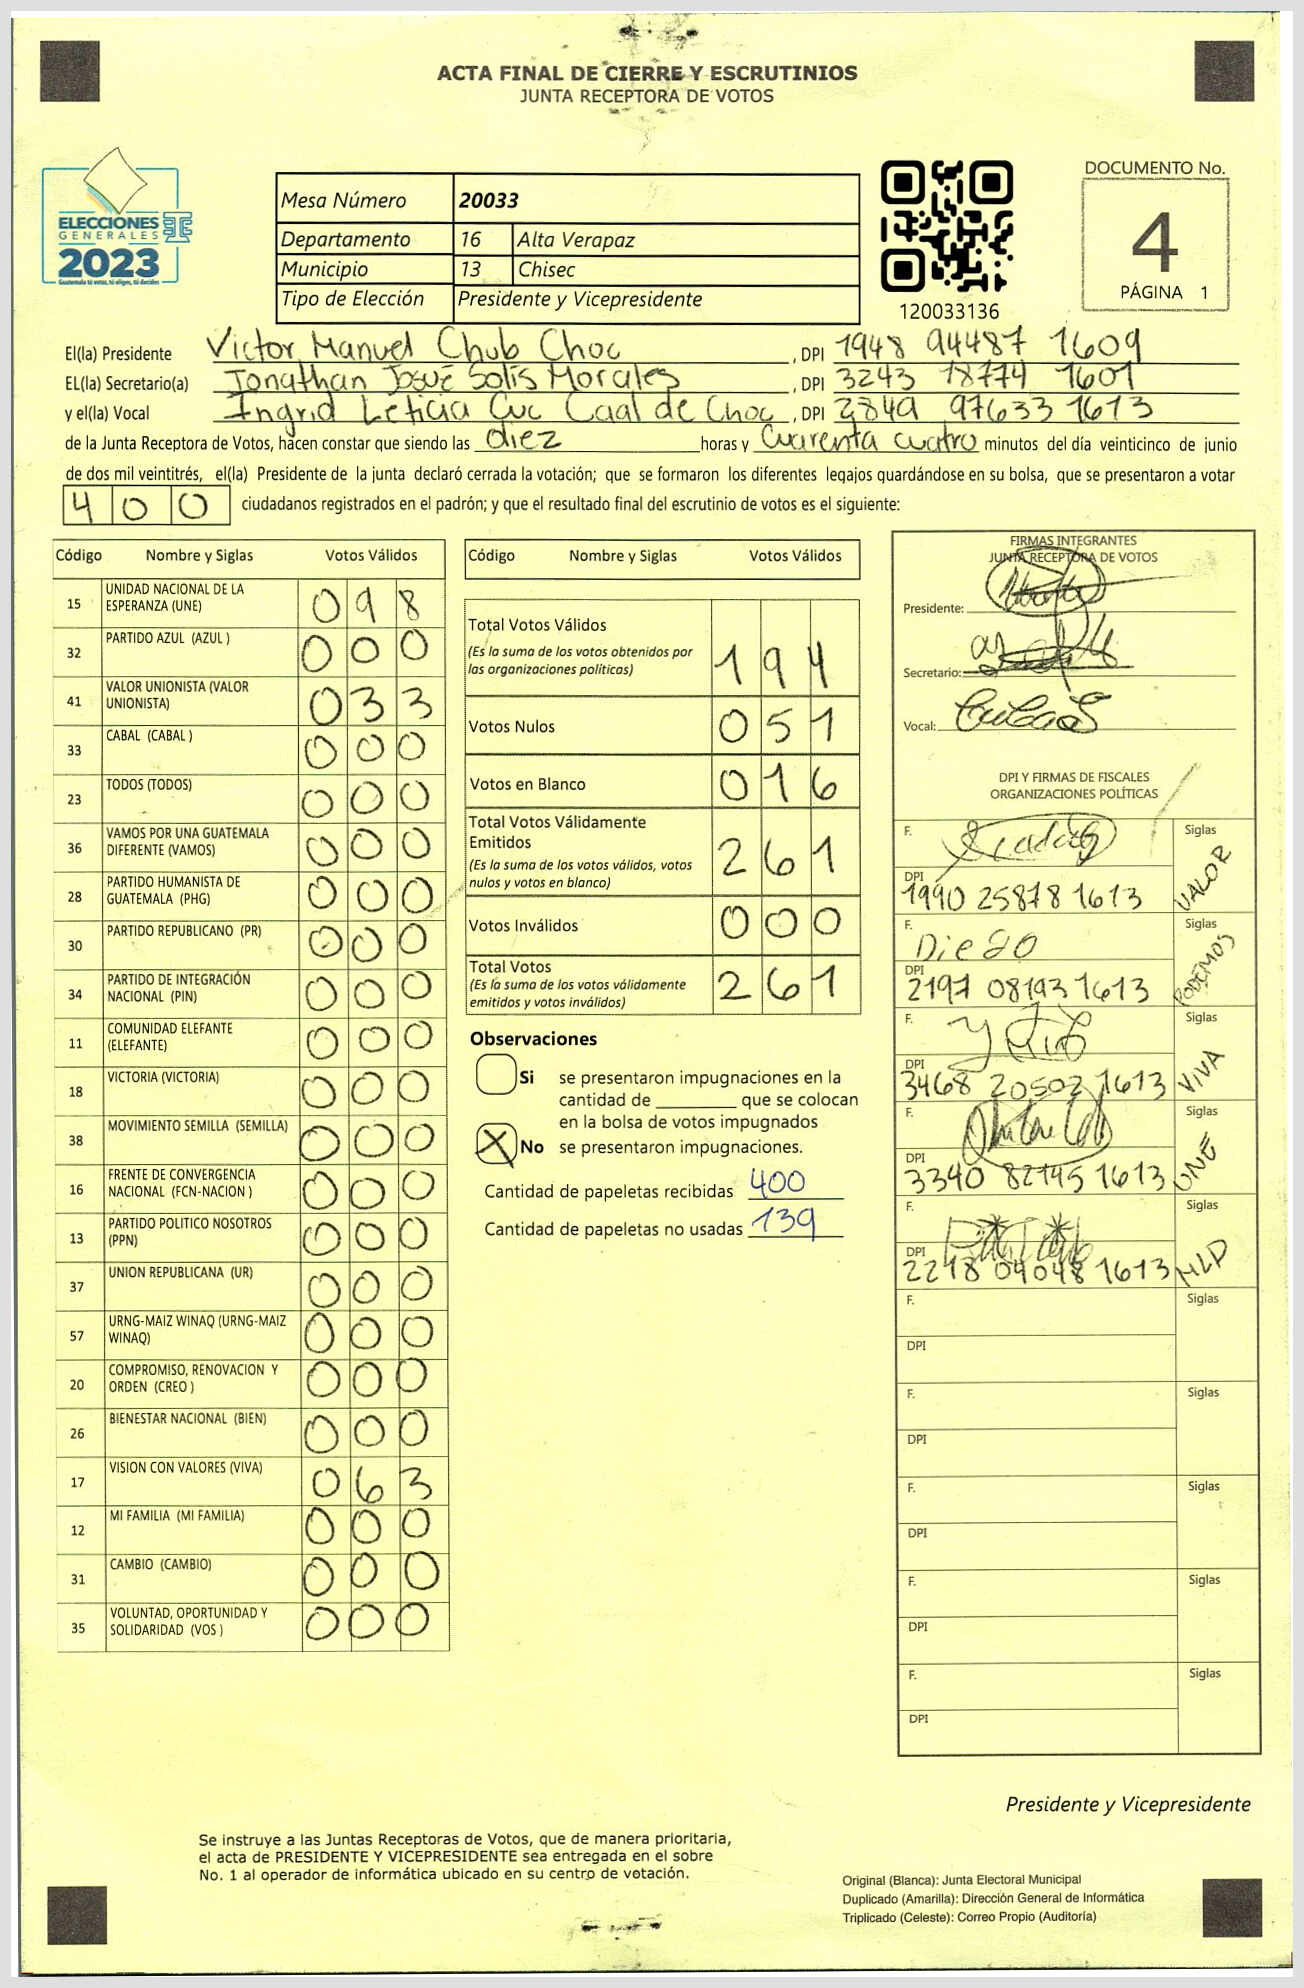 ACTA FINAL DE CIERRE Y ESCRUTINIOS
JUNTA RECEPTORA DE VOTOS
ELECCIONES
GENERALES
2023
Guatemala tú votas, tú eliges, tú decides
Mesa Número 20033
Departamento 16 Alta Verapaz
Municipio 13 Chisec
Tipo de Elección Presidente y Vicepresidente
120033136
DOCUMENTO No.
4
PÁGINA 1
El(la) Presidente Victor Manuel Chub Choc , DPI 1948 94487 1609
EL(la) Secretario(a) Jonathan Josué Solís Morales , DPI 3243 18774 1601
y el(la) Vocal Ingrid Leticia Cuc Caal de Choc , DPI 2849 97633 1613
de la Junta Receptora de Votos, hacen constar que siendo las diez horas y Cuarenta cuatro minutos del día veinticinco de junio
de dos mil veintitrés, el(la) Presidente de la junta declaró cerrada la votación; que se formaron los diferentes legajos quardándose en su bolsa, que se presentaron a votar
400 ciudadanos registrados en el padrón; y que el resultado final del escrutinio de votos es el siguiente:
Código Nombre y Siglas Votos Válidos
15 UNIDAD NACIONAL DE LA ESPERANZA (UNE) 098
32 PARTIDO AZUL (AZUL ) 000
41 VALOR UNIONISTA (VALOR UNIONISTA) 033
33 CABAL (CABAL ) 000
23 TODOS (TODOS) 000
36 VAMOS POR UNA GUATEMALA DIFERENTE (VAMOS) 000
28 PARTIDO HUMANISTA DE GUATEMALA (PHG) 000
30 PARTIDO REPUBLICANO (PR) 000
34 PARTIDO DE INTEGRACIÓN NACIONAL (PIN) 000
11 COMUNIDAD ELEFANTE (ELEFANTE) 000
18 VICTORIA (VICTORIA) 000
38 MOVIMIENTO SEMILLA (SEMILLA) 000
16 FRENTE DE CONVERGENCIA NACIONAL (FCN-NACION ) 000
13 PARTIDO POLITICO NOSOTROS (PPN) 000
37 UNION REPUBLICANA (UR) 000
57 URNG-MAIZ WINAQ (URNG-MAIZ WINAQ) 000
20 COMPROMISO, RENOVACION Y ORDEN (CREO ) 000
26 BIENESTAR NACIONAL (BIEN) 000
17 VISION CON VALORES (VIVA) 063
12 MI FAMILIA (MI FAMILIA) 000
31 CAMBIO (CAMBIO) 000
35 VOLUNTAD, OPORTUNIDAD Y SOLIDARIDAD (VOS ) 000
Código Nombre y Siglas Votos Válidos
Total Votos Válidos 194
(Es la suma de los votos obtenidos por
las organizaciones políticas)
Votos Nulos 051
Votos en Blanco 016
Total Votos Válidamente
Emitidos 261
(Es la suma de los votos válidos, votos
nulos y votos en blanco)
Votos Inválidos 000
Total Votos 261
(Es la suma de los votos válidamente
emitidos y votos inválidos)
Observaciones
Si se presentaron impugnaciones en la
cantidad de ________ que se colocan
en la bolsa de votos impugnados
X No se presentaron impugnaciones.
Cantidad de papeletas recibidas 400
Cantidad de papeletas no usadas 139
FIRMAS INTEGRANTES
JUNTA RECEPTORA DE VOTOS
Presidente:
Secretario:
Vocal:
DPI Y FIRMAS DE FISCALES
ORGANIZACIONES POLÍTICAS
F. Siglas VALOR
DPI 1990 25878 1613
F. Diego Siglas PODEMOS
DPI 2197 08193 1613
F. Siglas VIVA
DPI 3468 20502 1613
F. Siglas UNE
DPI 3340 82145 1613
F. Siglas MLP
DPI 2218 04048 1613
F. Siglas
DPI
F. Siglas
DPI
F. Siglas
DPI
F. Siglas
DPI
F. Siglas
DPI
Presidente y Vicepresidente
Se instruye a las Juntas Receptoras de Votos, que de manera prioritaria,
el acta de PRESIDENTE Y VICEPRESIDENTE sea entregada en el sobre
No. 1 al operador de informática ubicado en su centro de votación.
Original (Blanca): Junta Electoral Municipal
Duplicado (Amarilla): Dirección General de Informática
Triplicado (Celeste): Correo Propio (Auditoría)